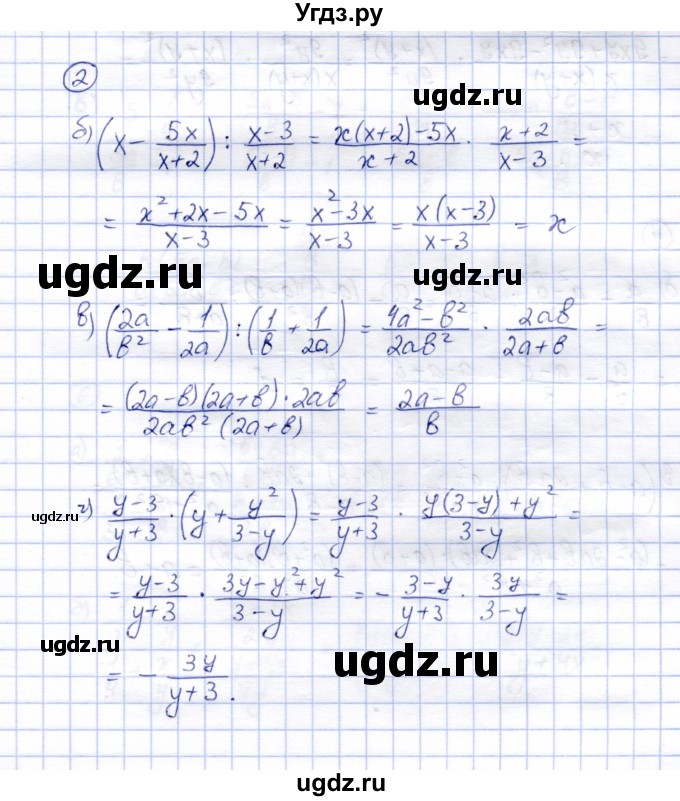 Угдз.ру
2
ugdz.ru
б) (x - 5x/(x+2)) : (x-3)/(x+2) = (x(x+2)-5x)/(x+2) · (x+2)/(x-3) =
= (x²+2x-5x)/(x-3) = (x²-3x)/(x-3) = (x(x-3))/(x-3) = x
ugdz.ru ugdz.ru
в) (2a/в² - 1/2a) : (1/в + 1/2a) = (4a²-в²)/2aв² · 2aв/(2a+в) =
= ((2a-в)(2a+в)·2aв)/(2aв²(2a+в)) = (2a-в)/в
ugdz.ru г) (y-3)/(y+3) · (y + y²/(3-y)) = (y-3)/(y+3) · (y(3-y)+y²)/(3-y) =
= (y-3)/(y+3) · (3y-y²+y²)/(3-y) = - (3-y)/(y+3) · 3y/(3-y) =
ugdz.ru ugdz.ru
= - 3y/(y+3).
ugdz.ru